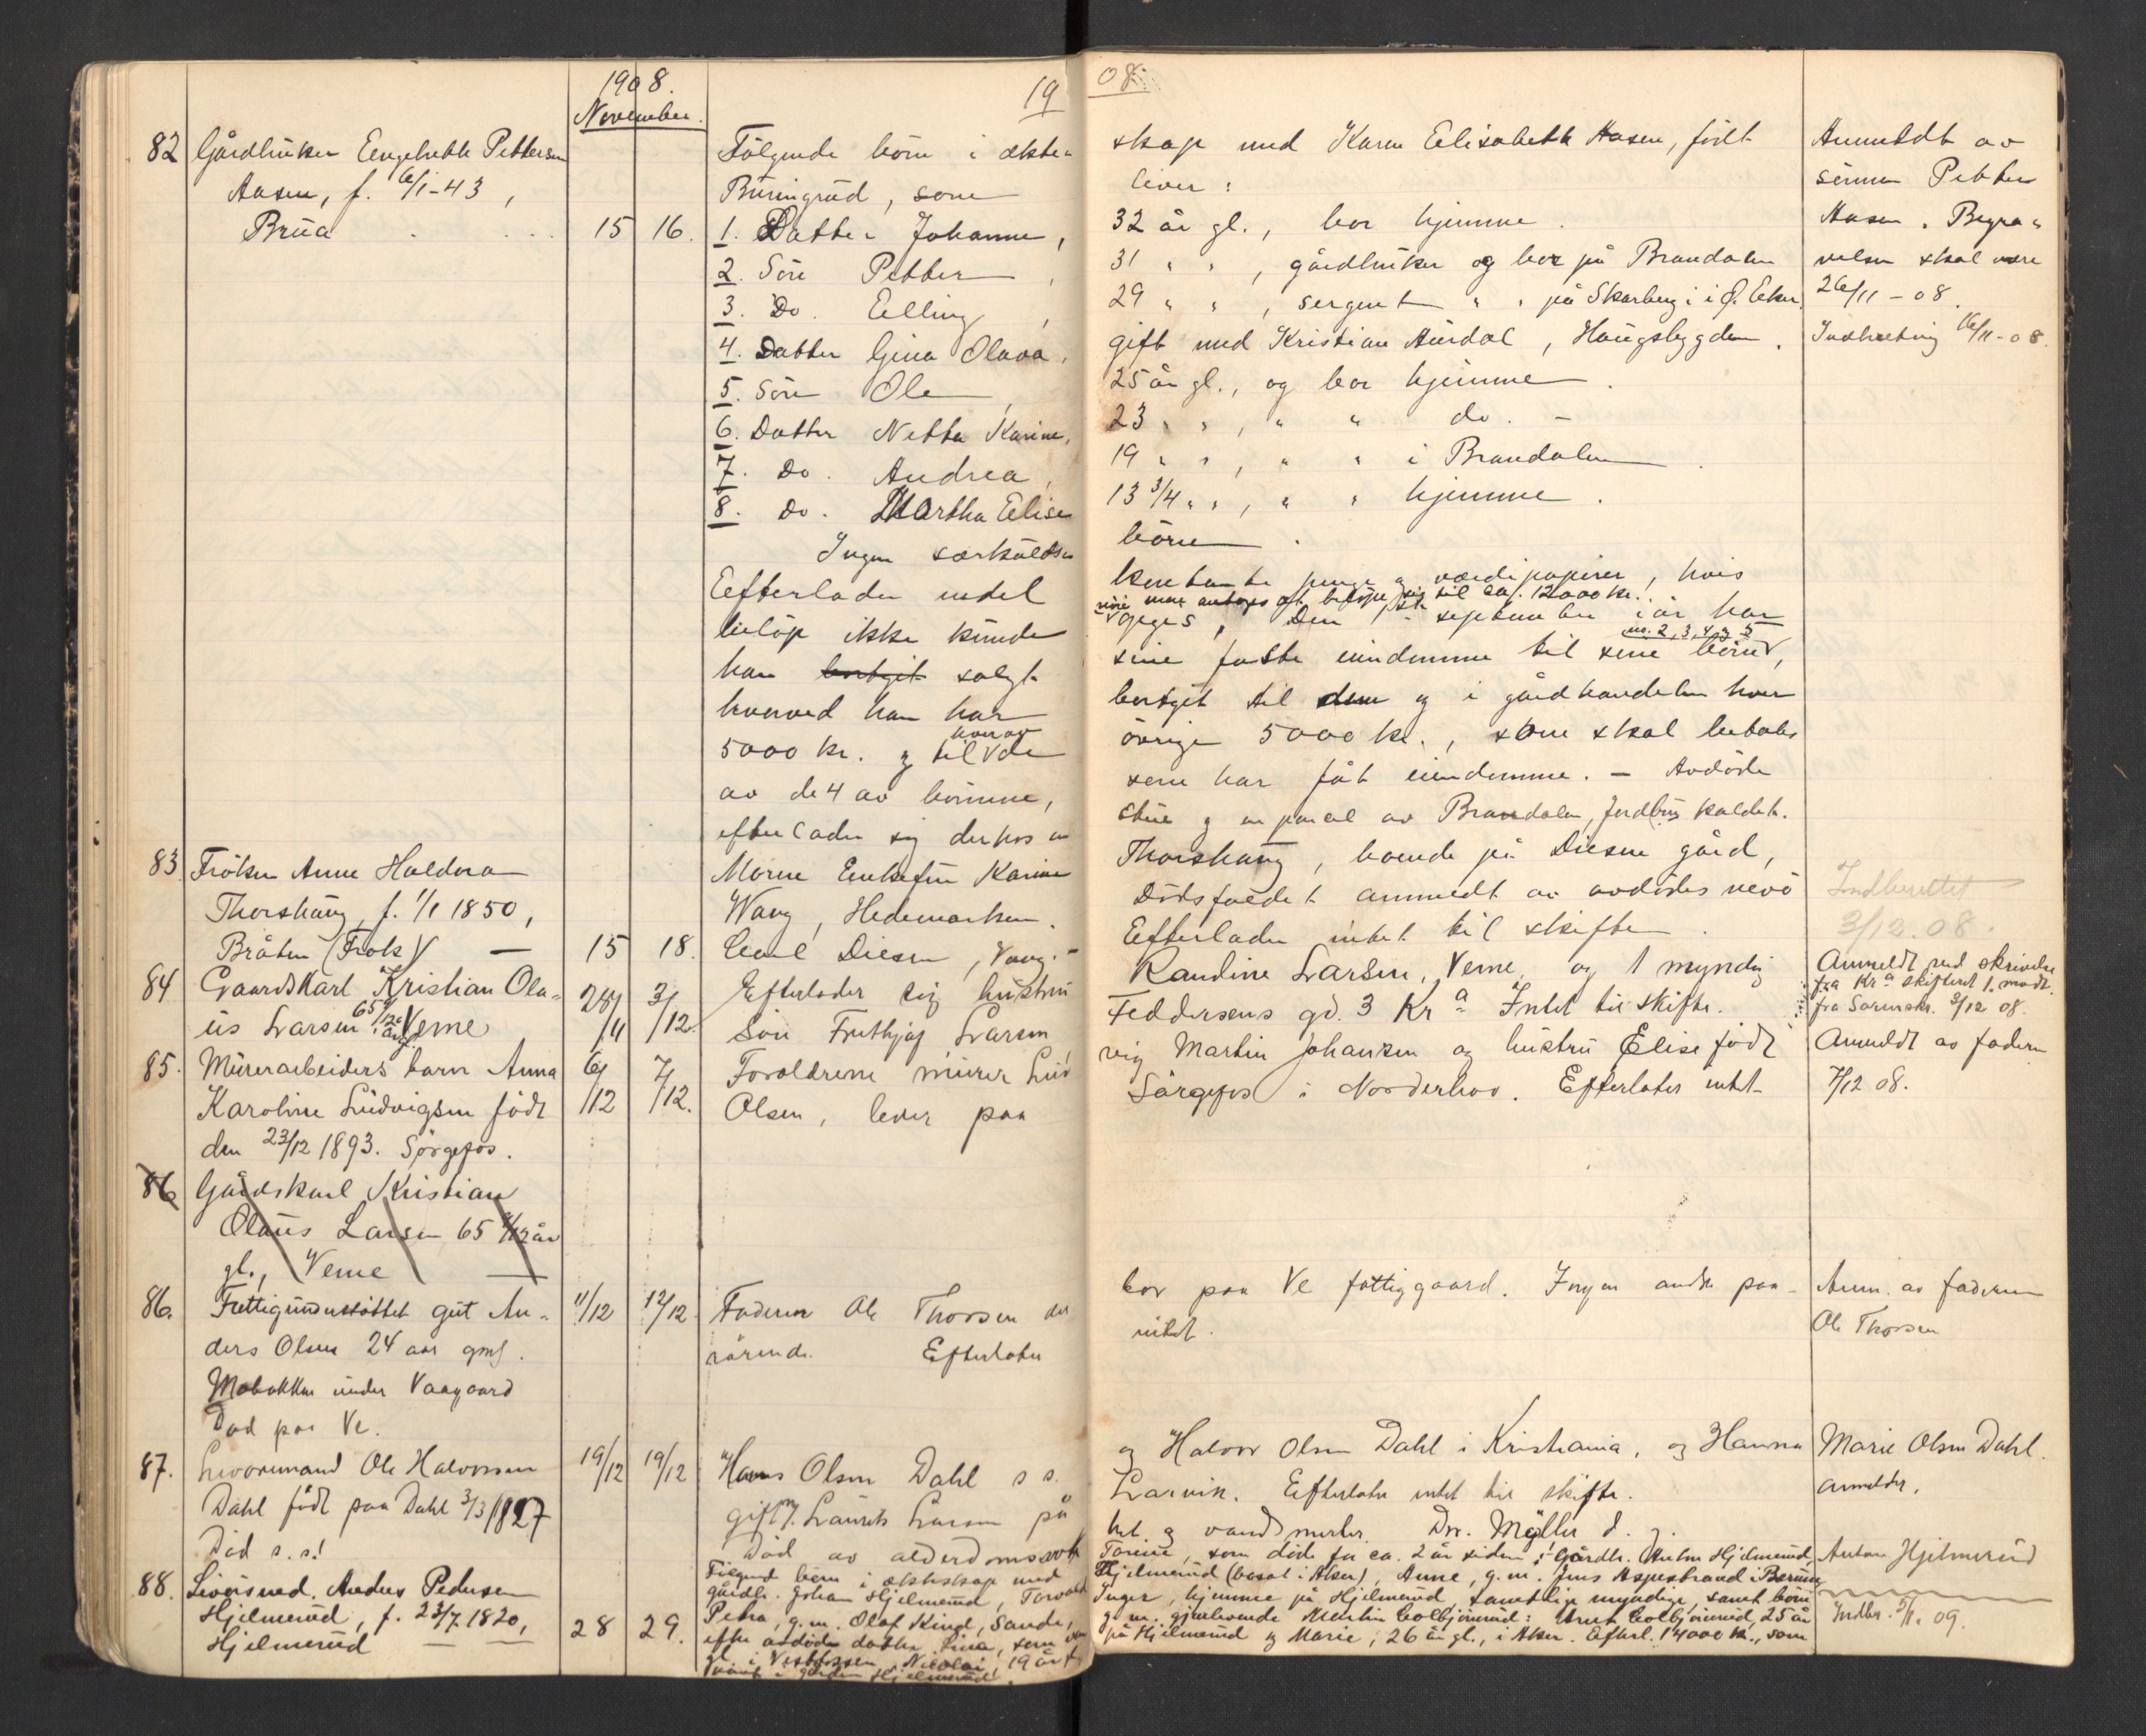 1908.
November.
19
08.
82 Gårdbruker Engebrekt Pettersen
Aasen, f. 6/1-43,
Brua 15 16.
Følgende børn i ekte-
skap med Karen Elisabeth Aasen, født
Buringrud, som
lever:
1. Datter Johanne,
32 år gl., bor hjemme.
2. Søn Petter,
31 " ", gårdbruker og bor på Brandalen
3. Do. Elling,
29 " ", sergent " " på Skarberg i Ø. Eker.
4. Datter Gina Olava,
gift med Kristian Aurdal, Haugsbygden.
5. Søn Ole,
25 år gl., og bor hjemme.
6. Datter Netta Karine,
23 " ", " " do. -
7. Do. Andrea,
19 " ", " " i Brandalen.
8. Do. Martha Elise
13 3/4 " ", " " hjemme.
Ingen særkulds-
børn.
Efterlader endel
kontante penge og værdipapirer, hvis
beløp ikke kunde
nøie men antages at beløpe sig til ca. 12000 kr.
opgis, Den 1ste september i år har
han bortgit solgt
sine faste eiendomme til sine børn no. 2, 3, 4 og 5,
hvorved han har
bortgit til dem og i gårdhandelen hver
5000 kr. og til de hvorav
øvrige 5000 kr., som skal betales
av de 4 av børnene,
som har fåt eiendomme. - Avdøde
efterlader sig derhos en
stue og en parcel av Brandalen, Jordbus kaldet.
Anmeldt av
sønnen Petter
Aasen. Begra-
velsen skal være
26/11-08.
Indberetning 16/11-08.
83. Frøken Anne Haldora
Thorshaug, f. 1/1 1850,
Bråten (Frok) - 15 18.
Moren Enkefru Karine
Thorshaug, boende på Diesen gård,
Wang, Hedemarken.
Dødsfaldet anmeldt av avdødes nevø
Carl Diesen, Vang. -
Efterlader intet til skifte.
Indberettet
3/12.08.
84 Gaardskarl Kristian Ola-
us Larsen 65 9/12 år gl. Verne
28/11 3/12.
Efterlader sig hustru
Randine Larsen, Verne, og 1 myndig
Søn Frithjof Larsen
Feddersens gd. 3 Kra Intet til skifte.
Anmeldt ved skrivelse
fra Kra skifteret 1. modt.
fra Sorenskr. 3/12 08.
85. Murerarbeiders barn Anna
Karoline Ludvigsen født
den 23/12 1893. Sørgefos.
6/12 7/12.
Forældrene murer Lud
vig Martin Johansen og hustru Elise født
Olsen, lever paa
Sørgefos i Norderhov. Efterlater intet
Anmeldt av faderen
7/12 08.
86 Gårdskarl Kristian
Olaus Larsen 65 9/12 år
gl., Verne -
86. Fattigunderstøttet gut An-
ders Olsen 24 aar gml.
Mobakken under Vaagaard
Død paa Ve.
11/12 12/12.
Faderen Ole Thorsen der
bor paa Ve fattiggaard. Ingen andre paa-
rørende. Efterlater
intet.
Anm. av faderen
Ole Thorsen
87. Livøremand Ole Halvorsen
Dahl født paa Dahl 3/3 1827
Død s. s.!
19/12 19/12
Hans Olsen Dahl s s.
og Halvor Olsen Dahl i Kristiania, og Hanna
gift m. Lauritz Larsen på
Larvik. Efterlater intet til skifte.
Død av alderdomssvak
het og vandsmerter Dr. Møller d. y.
Marie Olsen Dahl.
anmelder.
88. Livørsmd. Anders Pedersen
Hjelmerud, f. 23/7 1820,
Hjelmerud - - 28 29.
Følgende børn i ekteskap med
Torine, som døde for ca. 2 år siden: Gårdbr. Anton Hjelmerud,
gårdbr. Johan Hjelmerud, Torvald
Hjelmerud (bosat i Aker), Anne, g.m. Jens Aspestrand i Bærum
Petra, g.m. Olaf Kind, Sande,
Inger, hjemme på Hjelmerud, samtlige myndige, samt børn
efter avdøde datter Lina, som var
g. m. gjenlevende Martin Colbjørnrud: Knut Colbjørnrud, 25 år
gl. i Vestfossen, Nicolai, 19 år
på Hjelmerud og Marie, 26 år gl., i Aker. Efterl. 14000 kr., som
i gården Hjelmerud.
Anton Hjelmerud
Indber. 5/1. 09.